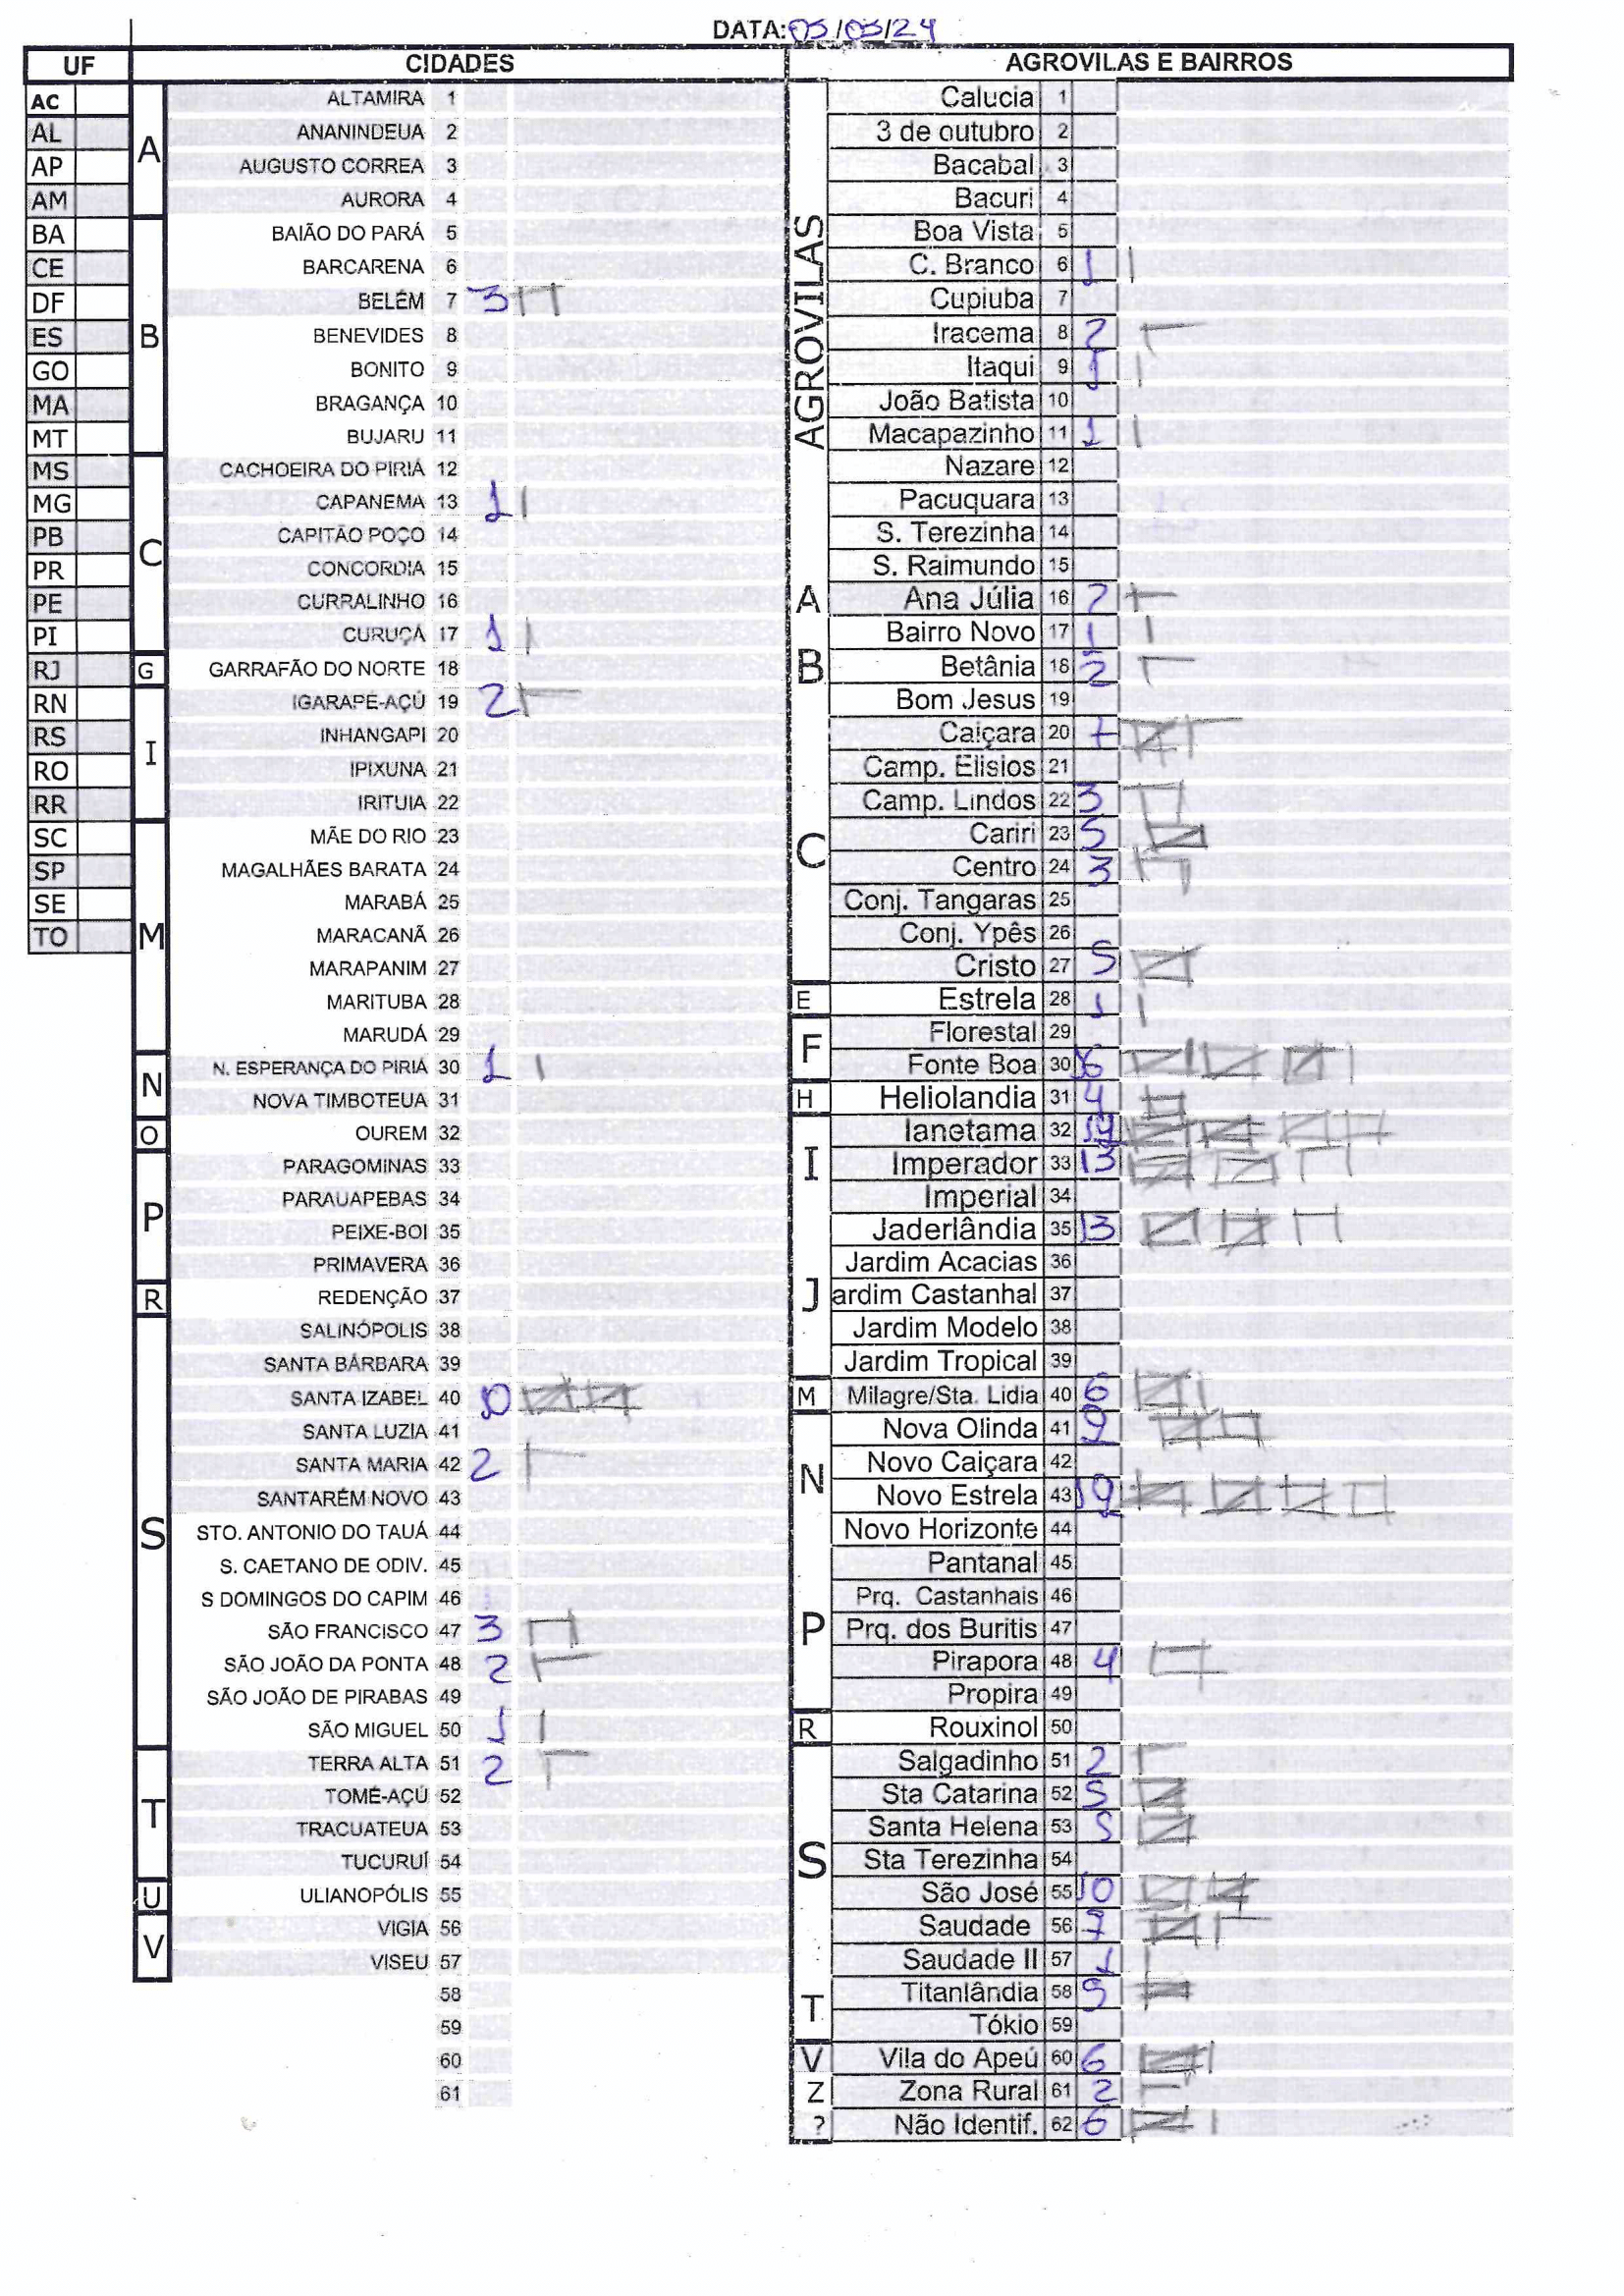 DATA: 05/03/24
UF
CIDADES
AGROVILAS E BAIRROS
AC
AL
AP
AM
BA
CE
DF
ES
GO
MA
MT
MS
MG
PB
PR
PE
PI
RJ
RN
RS
RO
RR
SC
SP
SE
TO
A
ALTAMIRA 1
ANANINDEUA 2
AUGUSTO CORREA 3
AURORA 4
B
BAIÃO DO PARÁ 5
BARCARENA 6
BELÉM 7 3
BENEVIDES 8
BONITO 9
BRAGANÇA 10
BUJARU 11
C
CACHOEIRA DO PIRIÁ 12
CAPANEMA 13 1
CAPITÃO POÇO 14
CONCORDIA 15
CURRALINHO 16
CURUÇÁ 17 1
G
GARRAFÃO DO NORTE 18
I
IGARAPÉ-AÇÚ 19 2
INHANGAPI 20
IPIXUNA 21
IRITUIA 22
M
MÃE DO RIO 23
MAGALHÃES BARATA 24
MARABÁ 25
MARACANÃ 26
MARAPANIM 27
MARITUBA 28
MARUDÁ 29
N
N. ESPERANÇA DO PIRIÁ 30 1
NOVA TIMBOTEUA 31
O
OUREM 32
P
PARAGOMINAS 33
PARAUAPEBAS 34
PEIXE-BOI 35
PRIMAVERA 36
R
REDENÇÃO 37
S
SALINÓPOLIS 38
SANTA BÁRBARA 39
SANTA IZABEL 40 10
SANTA LUZIA 41
SANTA MARIA 42 2
SANTARÉM NOVO 43
STO. ANTONIO DO TAUÁ 44
S. CAETANO DE ODIV. 45
S DOMINGOS DO CAPIM 46
SÃO FRANCISCO 47 3
SÃO JOÃO DA PONTA 48 2
SÃO JOÃO DE PIRABAS 49
SÃO MIGUEL 50 1
T
TERRA ALTA 51 2
TOMÉ-AÇÚ 52
TRACUATEUA 53
TUCURUÍ 54
U
ULIANOPÓLIS 55
V
VIGIA 56
VISEU 57
58
59
60
61
AGROVILAS
Calucia 1
3 de outubro 2
Bacabal 3
Bacuri 4
Boa Vista 5
C. Branco 6 1
Cupiuba 7
Iracema 8 2
Itaqui 9 1
João Batista 10
Macapazinho 11 1
Nazare 12
Pacuquara 13
S. Terezinha 14
S. Raimundo 15
A
Ana Júlia 16 2
B
Bairro Novo 17 1
Betânia 18 2
Bom Jesus 19
C
Caiçara 20 7
Camp. Elisios 21
Camp. Lindos 22 3
Cariri 23 5
Centro 24 3
Conj. Tangaras 25
Conj. Ypês 26
Cristo 27 5
E
Estrela 28 1
F
Florestal 29
Fonte Boa 30 16
H
Heliolandia 31 4
I
Ianetama 32 19
Imperador 33 13
Imperial 34
J
Jaderlândia 35 13
Jardim Acacias 36
ardim Castanhal 37
Jardim Modelo 38
Jardim Tropical 39
M
Milagre/Sta. Lidia 40 6
N
Nova Olinda 41 9
Novo Caiçara 42
Novo Estrela 43 19
Novo Horizonte 44
P
Pantanal 45
Prq. Castanhais 46
Prq. dos Buritis 47
Pirapora 48 4
Propira 49
R
Rouxinol 50
S
Salgadinho 51 2
Sta Catarina 52 5
Santa Helena 53 5
Sta Terezinha 54
São José 55 10
Saudade 56 7
Saudade II 57 1
T
Titanlândia 58 5
Tókio 59
V
Vila do Apeú 60 6
Z
Zona Rural 61 2
?
Não Identif. 62 6